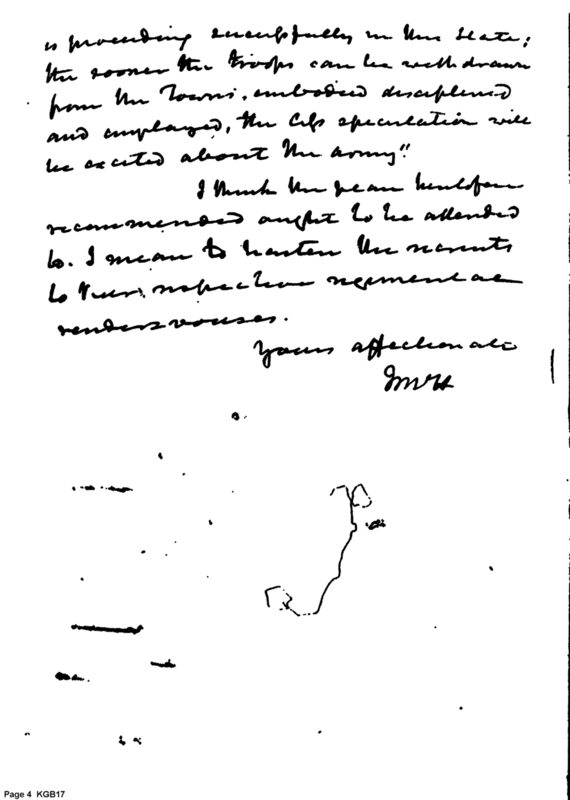 is proceeding successfully in this State;
the sooner the troops can be withdrawn
from the Towns, embodied disciplined
and employed, the less speculation will
be excited about the Army."
I think the plan heretofore
recommended ought to be attended
to. I mean to hasten the recruits
to their respective regimental
rendezvouses.
Yours affectionate
JMcH
Page 4 KGB17